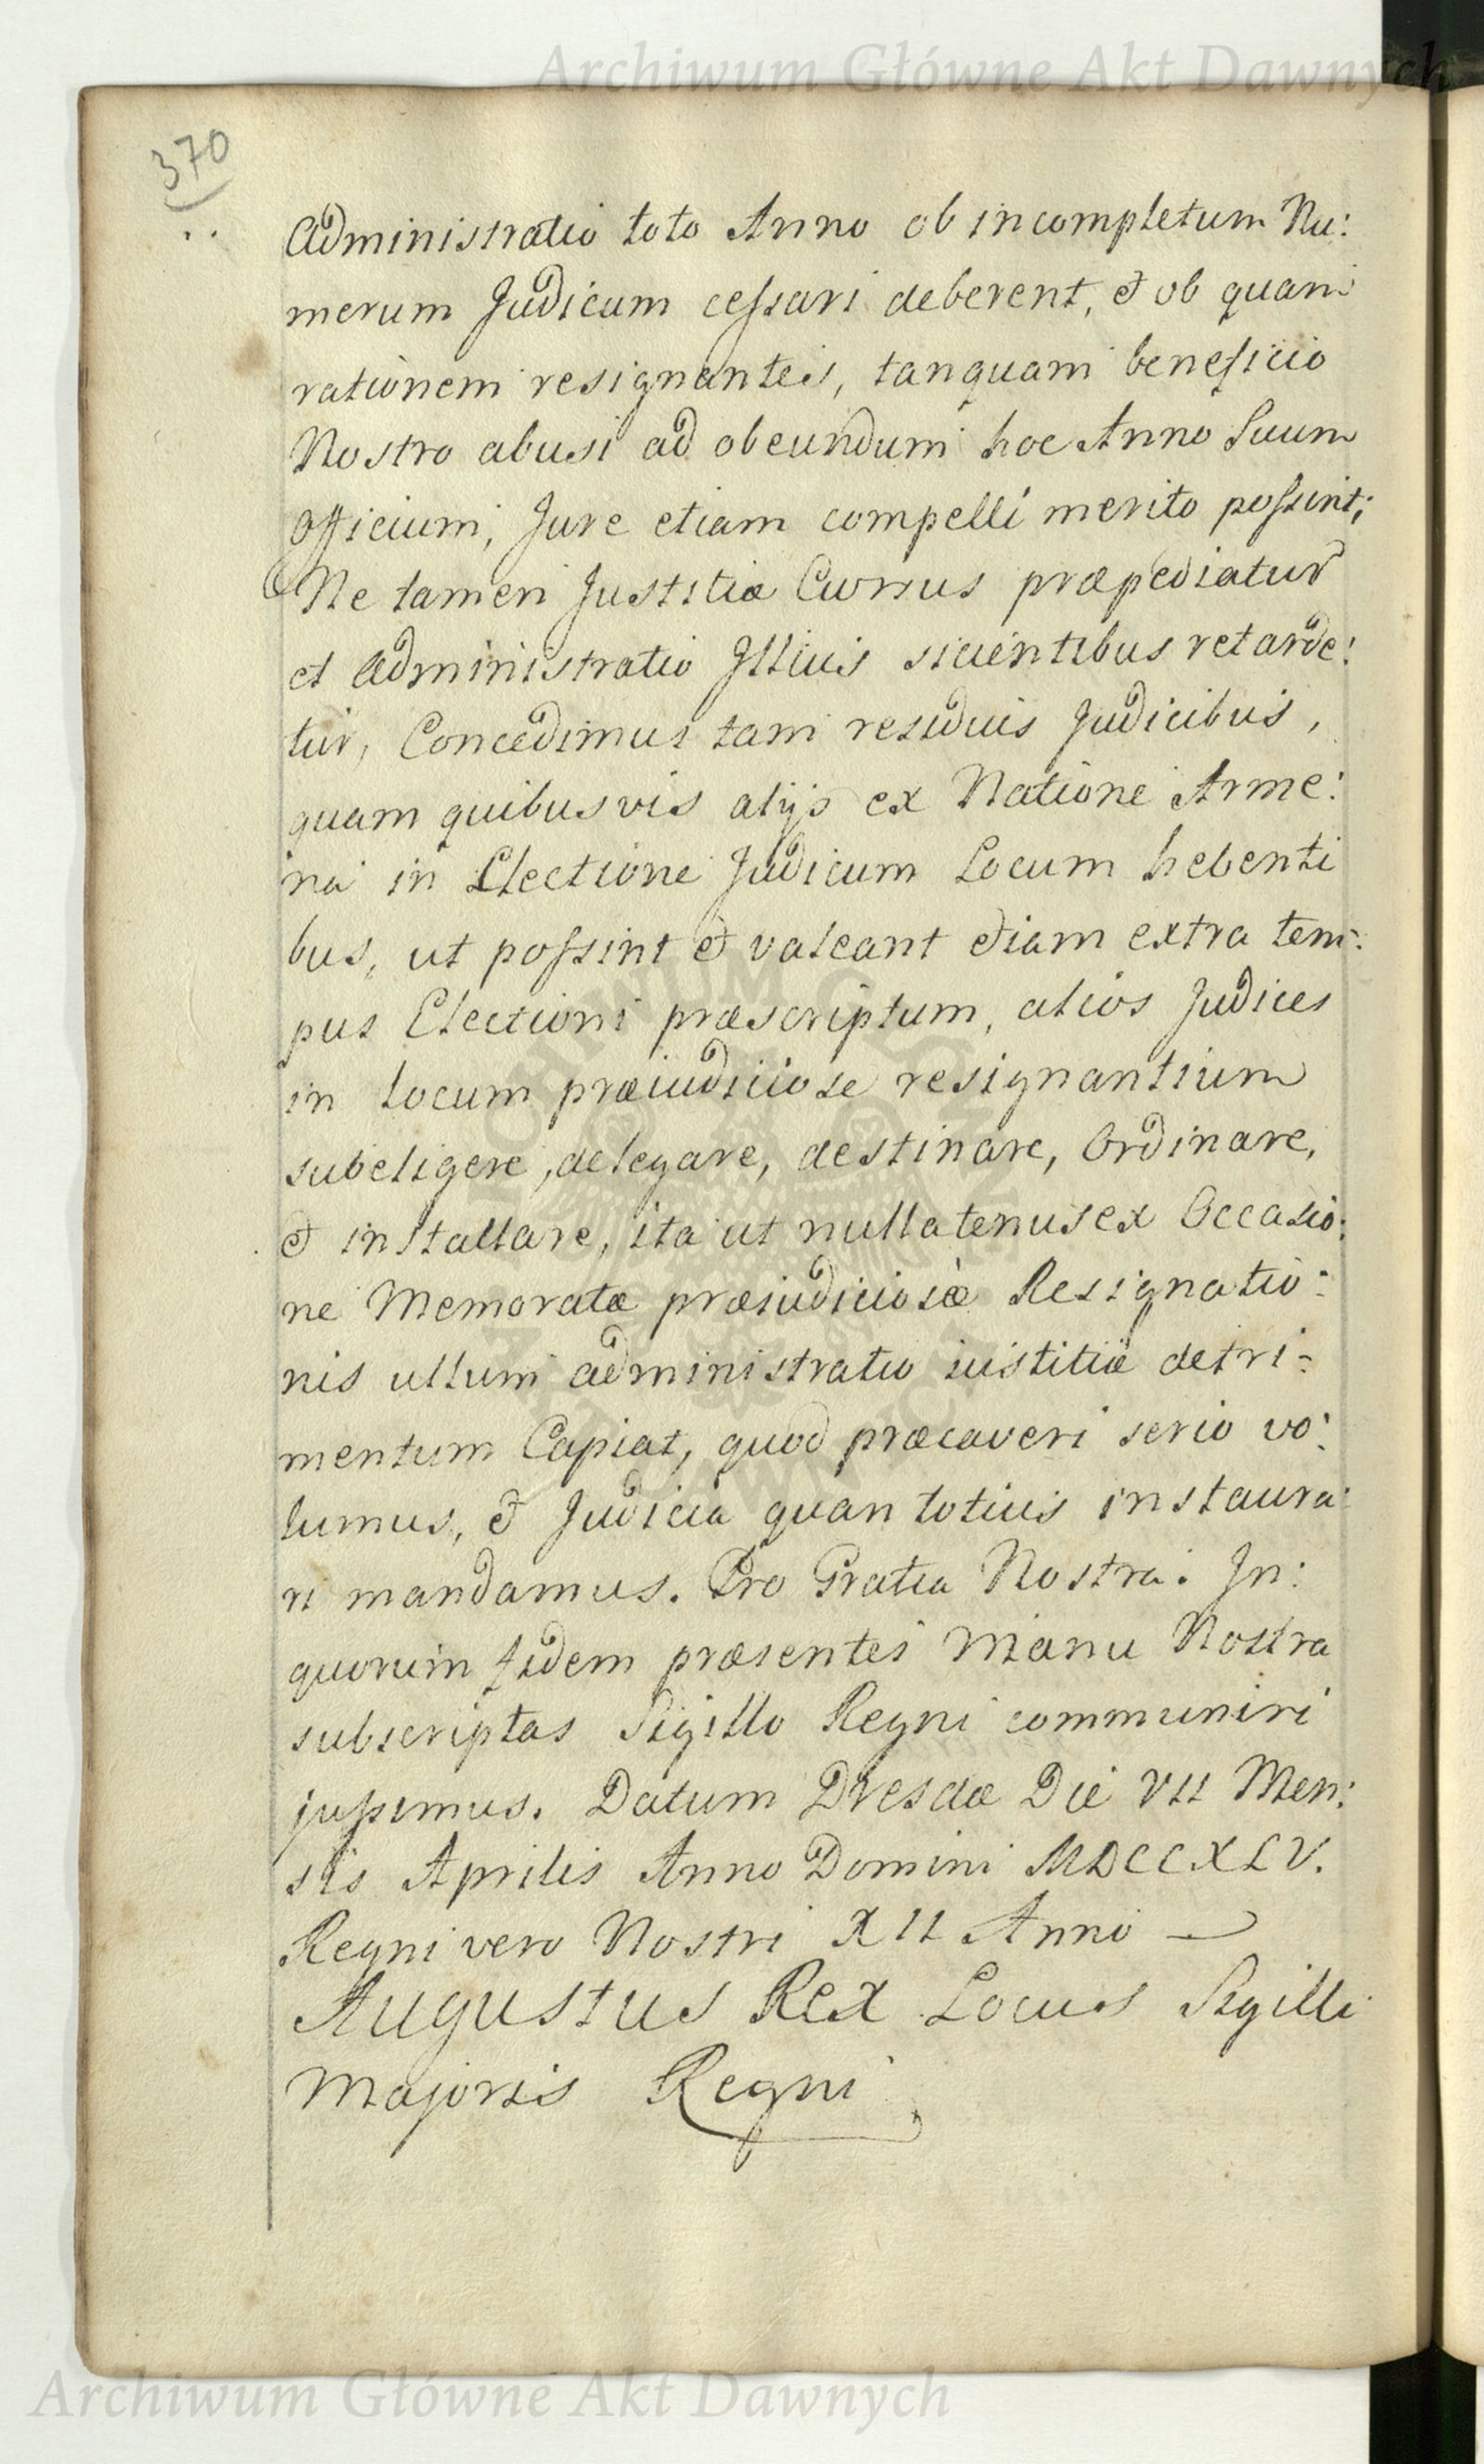 Archiwum Główne Akt Dawnych
370
Administratio toto Anno ob incompletum Nu:
merum Judicum cessari deberent, et ob quam
rationem resignantes, tanquam beneficio
Nostro abusi ad obeundum hoc Anno Suum
officium, Jure etiam compelli merito possint;
Ne tamen Justitiæ Cursus præpediatur
et Administratio Illius sicientibus retarde:
tur, Concedimus tam residuis Judicibus,
quam quibusvis alijs ex Natione Arme:
na in Electione Judicum Locum hebenti
bus, ut possint et valeant etiam extra tem:
pus Electioni præscriptum, alios Judices
in locum præiudiciose resignantium
subeligere, delegare, destinare, Ordinare,
et installare, ita ut nullatenus ex Occasio:
ne Memoratæ præiudiciosæ Resignatio:
nis ullum administratio iustitiæ detri:
mentum Capiat, quod præcaveri serio vo:
lumus, et Judicia quantotius instaura:
ri mandamus. Pro Gratia Nostra. In:
quorum fidem præsentes Manu Nostra
subscriptas Sigillo Regni communiri
jussimus. Datum Dresdæ Die VII Men:
sis Aprilis Anno Domini MDCCXLV.
Regni vero Nostri XII Anno
Augustus Rex Locus Sigilli
Majoris Regni
Archiwum Główne Akt Dawnych